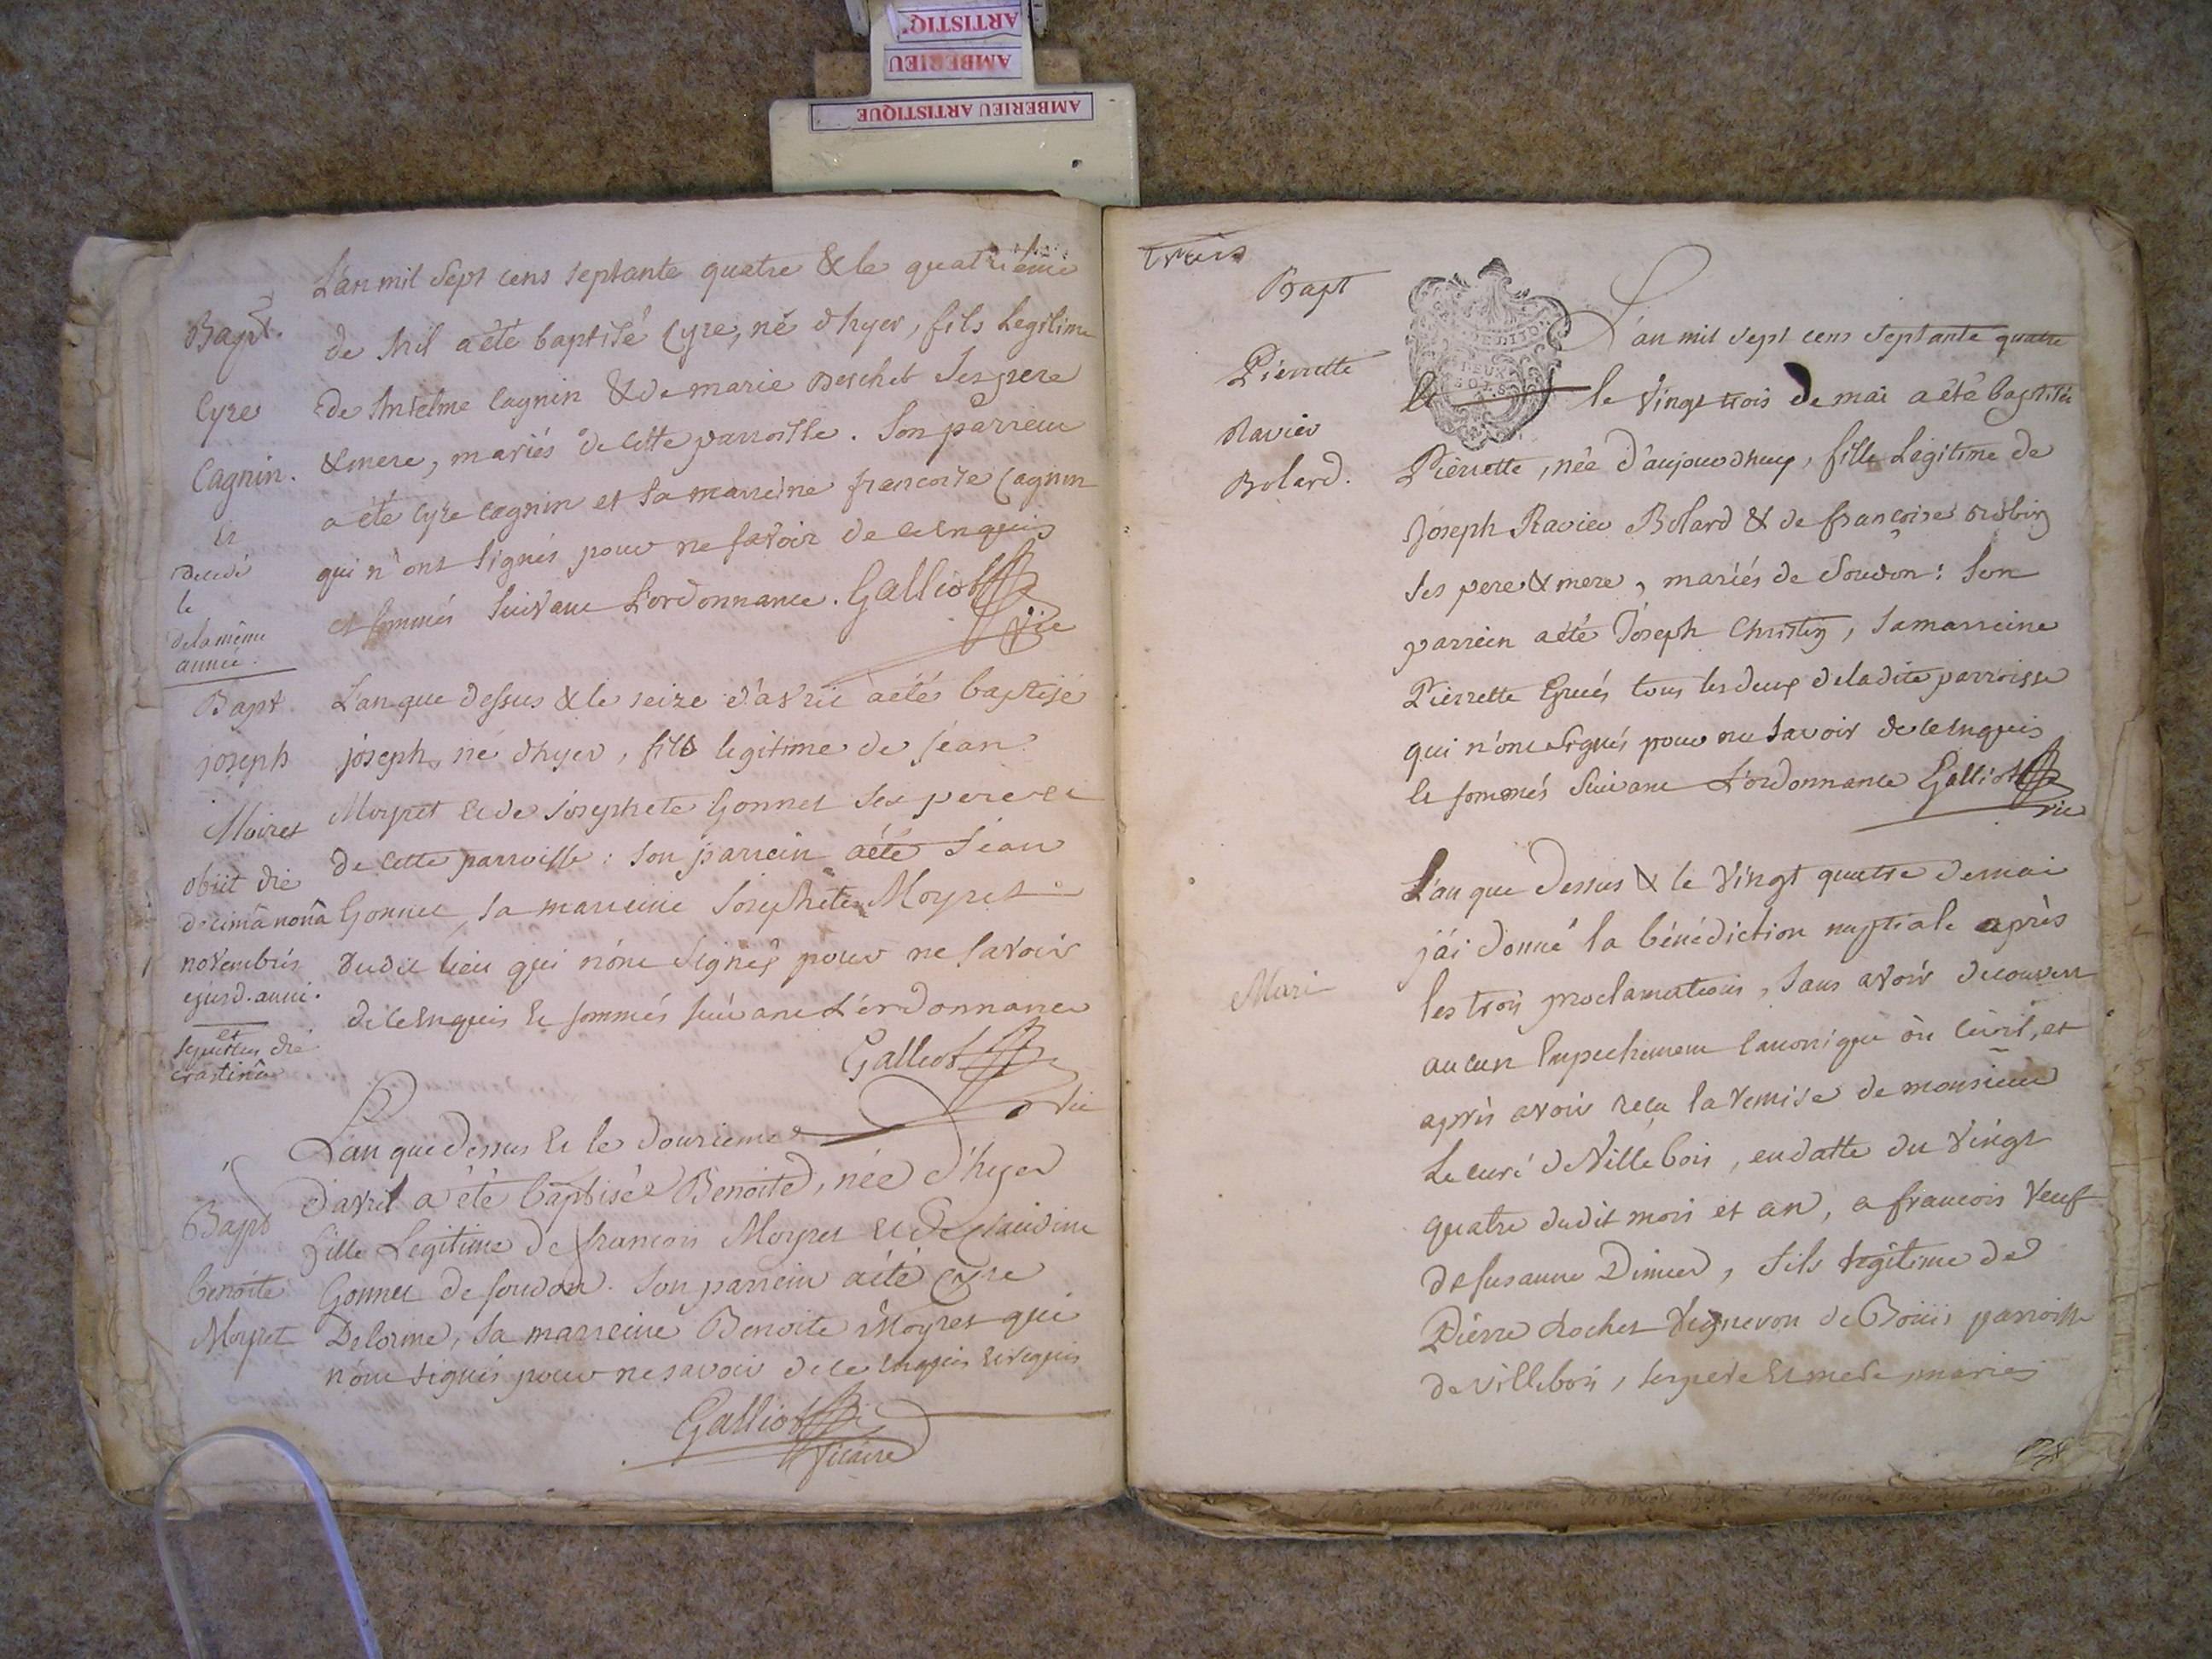 ARTISTIQ
AMBERIEU
AMBERIEU ARTISTIQUE
Bapt.
Cyre
Cagnin.
et
decedé
le
de la même
année.
L'an mil sept cens septante quatre & le quatrième
de avril a été baptisé Cyre, né d'hyer, fils Legitime
de Antelme Cagnin & de marie Peschet Ses pere
& mere, mariés de cette parroisse. Son parrein
a été Cyre Cagnin et sa marreine francoise Cagnin
qui n'ont signés pour ne savoir de ce enquis
et sommés suivant L'ordonnance. Galliot
vic
Bapt
joseph
Moiret
obiit die
decimâ nonâ
novembris
ejusd. anni.
et
sepultus die
crastinâ
L'an que dessus & le seize d'avril a été baptisé
joseph, né d'hyer, fils legitime de jean
Moyret et de Josephete Gonnet Ses pere et
de cette parroisse : son parrein a été Jean
Gonnet, sa marreine Josephete Moyret
dudit lieu qui n'ont signés pour ne savoir
de ce enquis et sommés suivant L'ordonnance
Galliot
vic
Bapt
benoite
Moyret
L'an que dessus et le douzieme
d'avril a été baptisée Benoite, née d'hyer
fille Legitime de francois Moyret et de Claudine
Gonnet de soudon. Son parrein a été Cyre
Delorme, sa marreine Benoite Moyret qui
n'ont signés pour ne savoir de ce enquis et requis
Galliot
vicaire
trois
Bapt
Pierrette
Ravier
Bolard.
DEUX
SOLS
L'an mil sept cens septante quatre
et le vingt trois de mai a été baptisée
Pierrette, née d'aujourdhuy, fille Légitime de
Joseph Ravier Bolard & de françoise Robin
Ses pere & mere, mariés de Soudon : Son
parrein a été Joseph Christin, Sa marreine
Pierrette tous les deux de ladite parroisse
qui n'ont signés pour ne savoir de ce enquis
et sommés suivant L'ordonnance Galliot
vic
Mari
L'an que dessus & le vingt quatre de mai
j'ai donné la bénédiction nuptiale après
les trois proclamations, sans avoir decouvert
aucun Empechement Canonique ou Civil, et
après avoir reçu la remise de monsieur
Le curé de Villebois, en datte du vingt
quatre dudit mois et an, a francois veuf
de susanne Dimier, fils légitime de
Pierre Rochet vigneron de Bouis parroisse
de villebois, ses pere et mere mariés